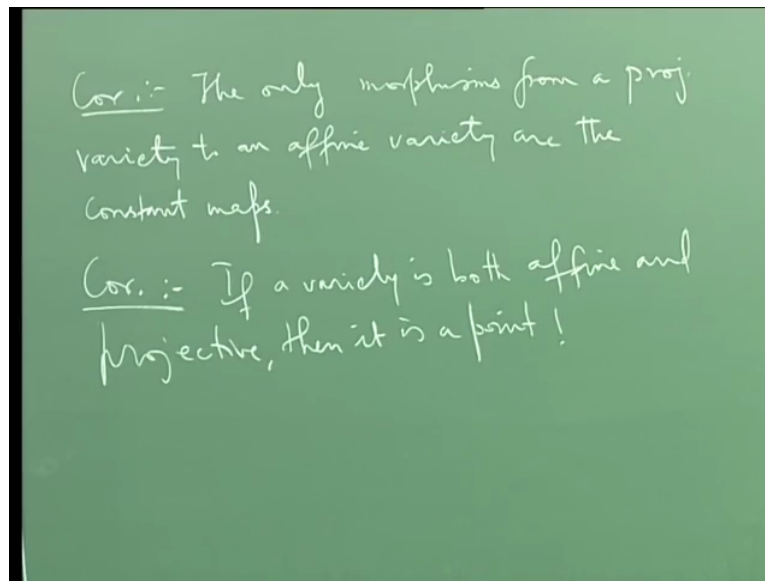 Cor. :- The only morphisms from a proj.
variety to an affine variety are the
constant maps.
Cor. :- If a variety is both affine and
projective, then it is a point!